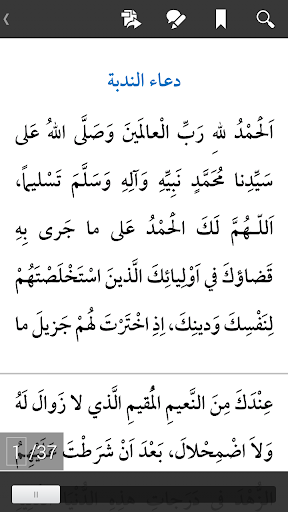 دعاء الندبة
اَلْحَمْدُ للهِ رَبِّ الْعالَمَينَ وَصَلَّى اللهُ عَلى
سَيِّدِنا مُحَمَّدٍ نَبِيِّهِ وَآلِهِ وَسَلَّمَ تَسْليماً،
اَللّـهُمَّ لَكَ الْحَمْدُ عَلى ما جَرى بِهِ
قَضاؤكَ في اَوْلِيائِكَ الَّذينَ اسْتَخْلَصْتَهُمْ
لِنَفْسِكَ وَدينِكَ، اِذِ اخْتَرْتَ لَهُمْ جَزيلَ ما
عِنْدَكَ مِنَ النَّعيمِ الْمُقيمِ الَّذي لا زَوالَ لَهُ
وَلاَ اضْمِحْلالَ، بَعْدَ اَنْ شَرَطْتَ عَلَيْهِمُ
1 /37